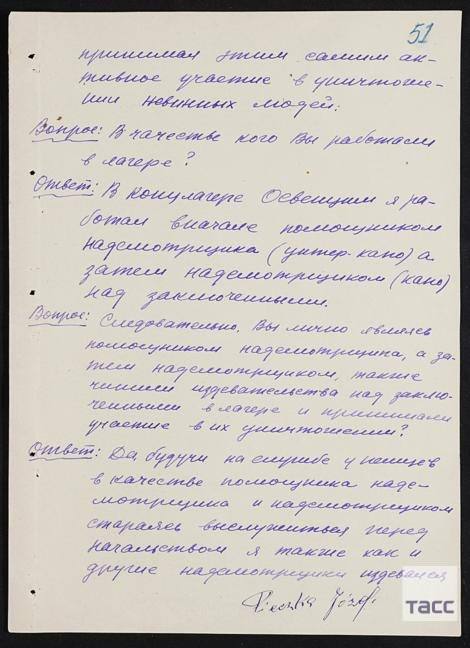 51
принимая этим самим ак-
тивное участие в уничтоже-
нии невинных людей.
Вопрос: В качестве кого Вы работали
в лагере?
Ответ: В концлагере Освенцим я ра-
ботал вначале помощником
надсмотрщика (унтер-капо) а
затем надсмотрщиком (капо)
над заключенными.
Вопрос: Следовательно, Вы лично являясь
помощником надсмотрщика, а за-
тем надсмотрщиком, также
чинили издевательства над заклю-
ченными в лагере и принимали
участие в их уничтожении?
Ответ: Да будучи на службе у немцев
в качестве помощника надс-
мотрщика и надсмотрщиком
стараясь выслужиться перед
начальством я также как и
другие надсмотрщики издевался
Józef
ТАСС